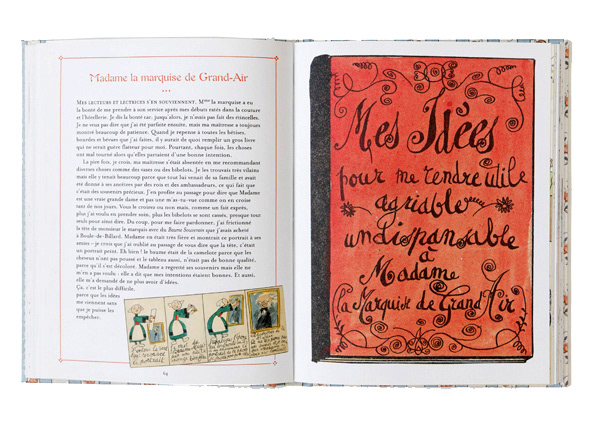 Madame la marquise de Grand-Air
MES LECTEURS ET LECTRICES S'EN SOUVIENNENT. Mme la marquise a eu
la bonté de me prendre à son service après mes débuts ratés dans la couture
et l'hôtellerie. Je dis la bonté car, jusqu'alors, je n'avais pas fait des étincelles.
Je ne veux pas dire que j'ai été parfaite ensuite, mais ma maîtresse a toujours
montré beaucoup de patience. Quand je repense à toutes les bêtises,
bourdes et bévues que j'ai faites, il y aurait de quoi remplir un gros livre
qui ne serait guère flatteur pour moi. Pourtant, chaque fois, les choses
ont mal tourné alors qu'elles partaient d'une bonne intention.
La pire fois, je crois, ma maîtresse s'était absentée en me recommandant
diverses choses comme des vases ou des bibelots. Je les trouvais très vilains
mais elle y tenait beaucoup parce que tout lui venait de sa famille et avait
été donné à ses ancêtres par des rois et des ambassadeurs, ce qui fait que
c'était des souvenirs précieux. J'en profite au passage pour dire que Madame est
une vraie grande dame et pas une m'as-tu-vue comme on en croise
tant de nos jours. Vous le croirez ou non mais, comme un fait exprès,
plus j'ai voulu en prendre soin, plus les bibelots se sont cassés, presque tout
seuls pour ainsi dire. Du coup, pour me faire pardonner, j'ai frictionné
la tête de monsieur le marquis avec du Baume Souverain que j'avais acheté
à Boule-de-Billard. Madame en était très fière et montrait ce portrait à ses
amies – je crois que j'ai oublié au passage de vous dire que la tête, c'était
un portrait peint. Eh bien ! le baume était de la camelote parce que les
cheveux n'ont pas poussé et le tableau aussi, n'était pas de bonne qualité,
parce qu'il s'est décoloré. Madame a regretté ses souvenirs mais elle ne
m'en a pas voulu : elle a dit que mes intentions étaient bonnes. Et aussi,
elle m'a demandé de ne plus avoir d'idées.
Ça, c'est le plus difficile,
parce que les idées
me viennent sans
que je puisse les
empêcher.
64
Mes Idées
pour me rendre utile
agriable
undispansable
à
Madame
la Marquise de Grand Air